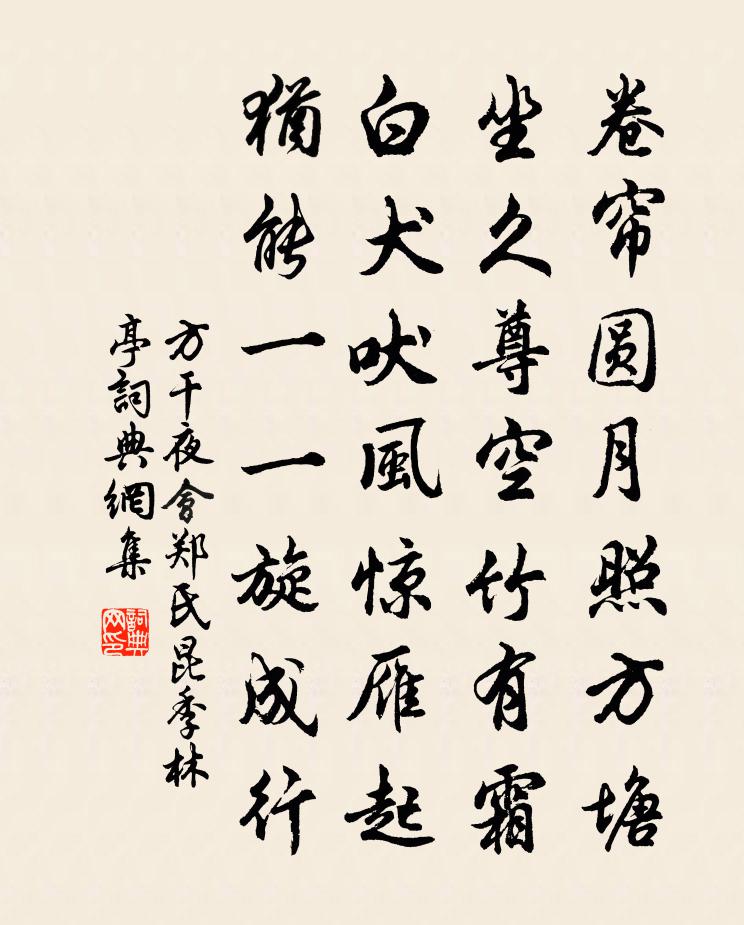 卷帘圆月照方塘
坐久尊空竹有霜
白犬吠風惊雁起
猶能一一旋成行
方干夜會郑氏昆季林
亭詞典網集
詞典网印